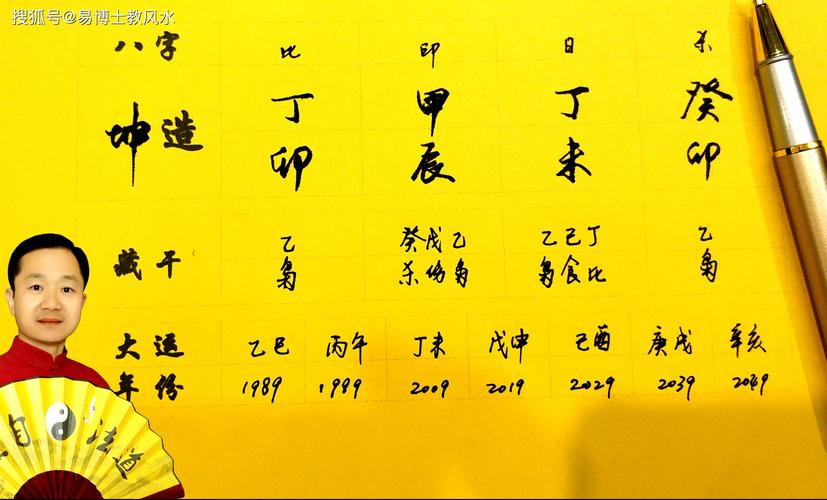 搜狐号@易博士教风水
八字 比 印 日 杀
坤造 丁 甲 丁 癸
卯 辰 未 卯
藏干 乙 癸戊乙 乙己丁 乙
枭 杀伤枭 枭食比 枭
大运 乙巳 丙午 丁未 戊申 己酉 庚戌 辛亥
年份 1989 1999 2009 2019 2029 2039 2049
自 法 道